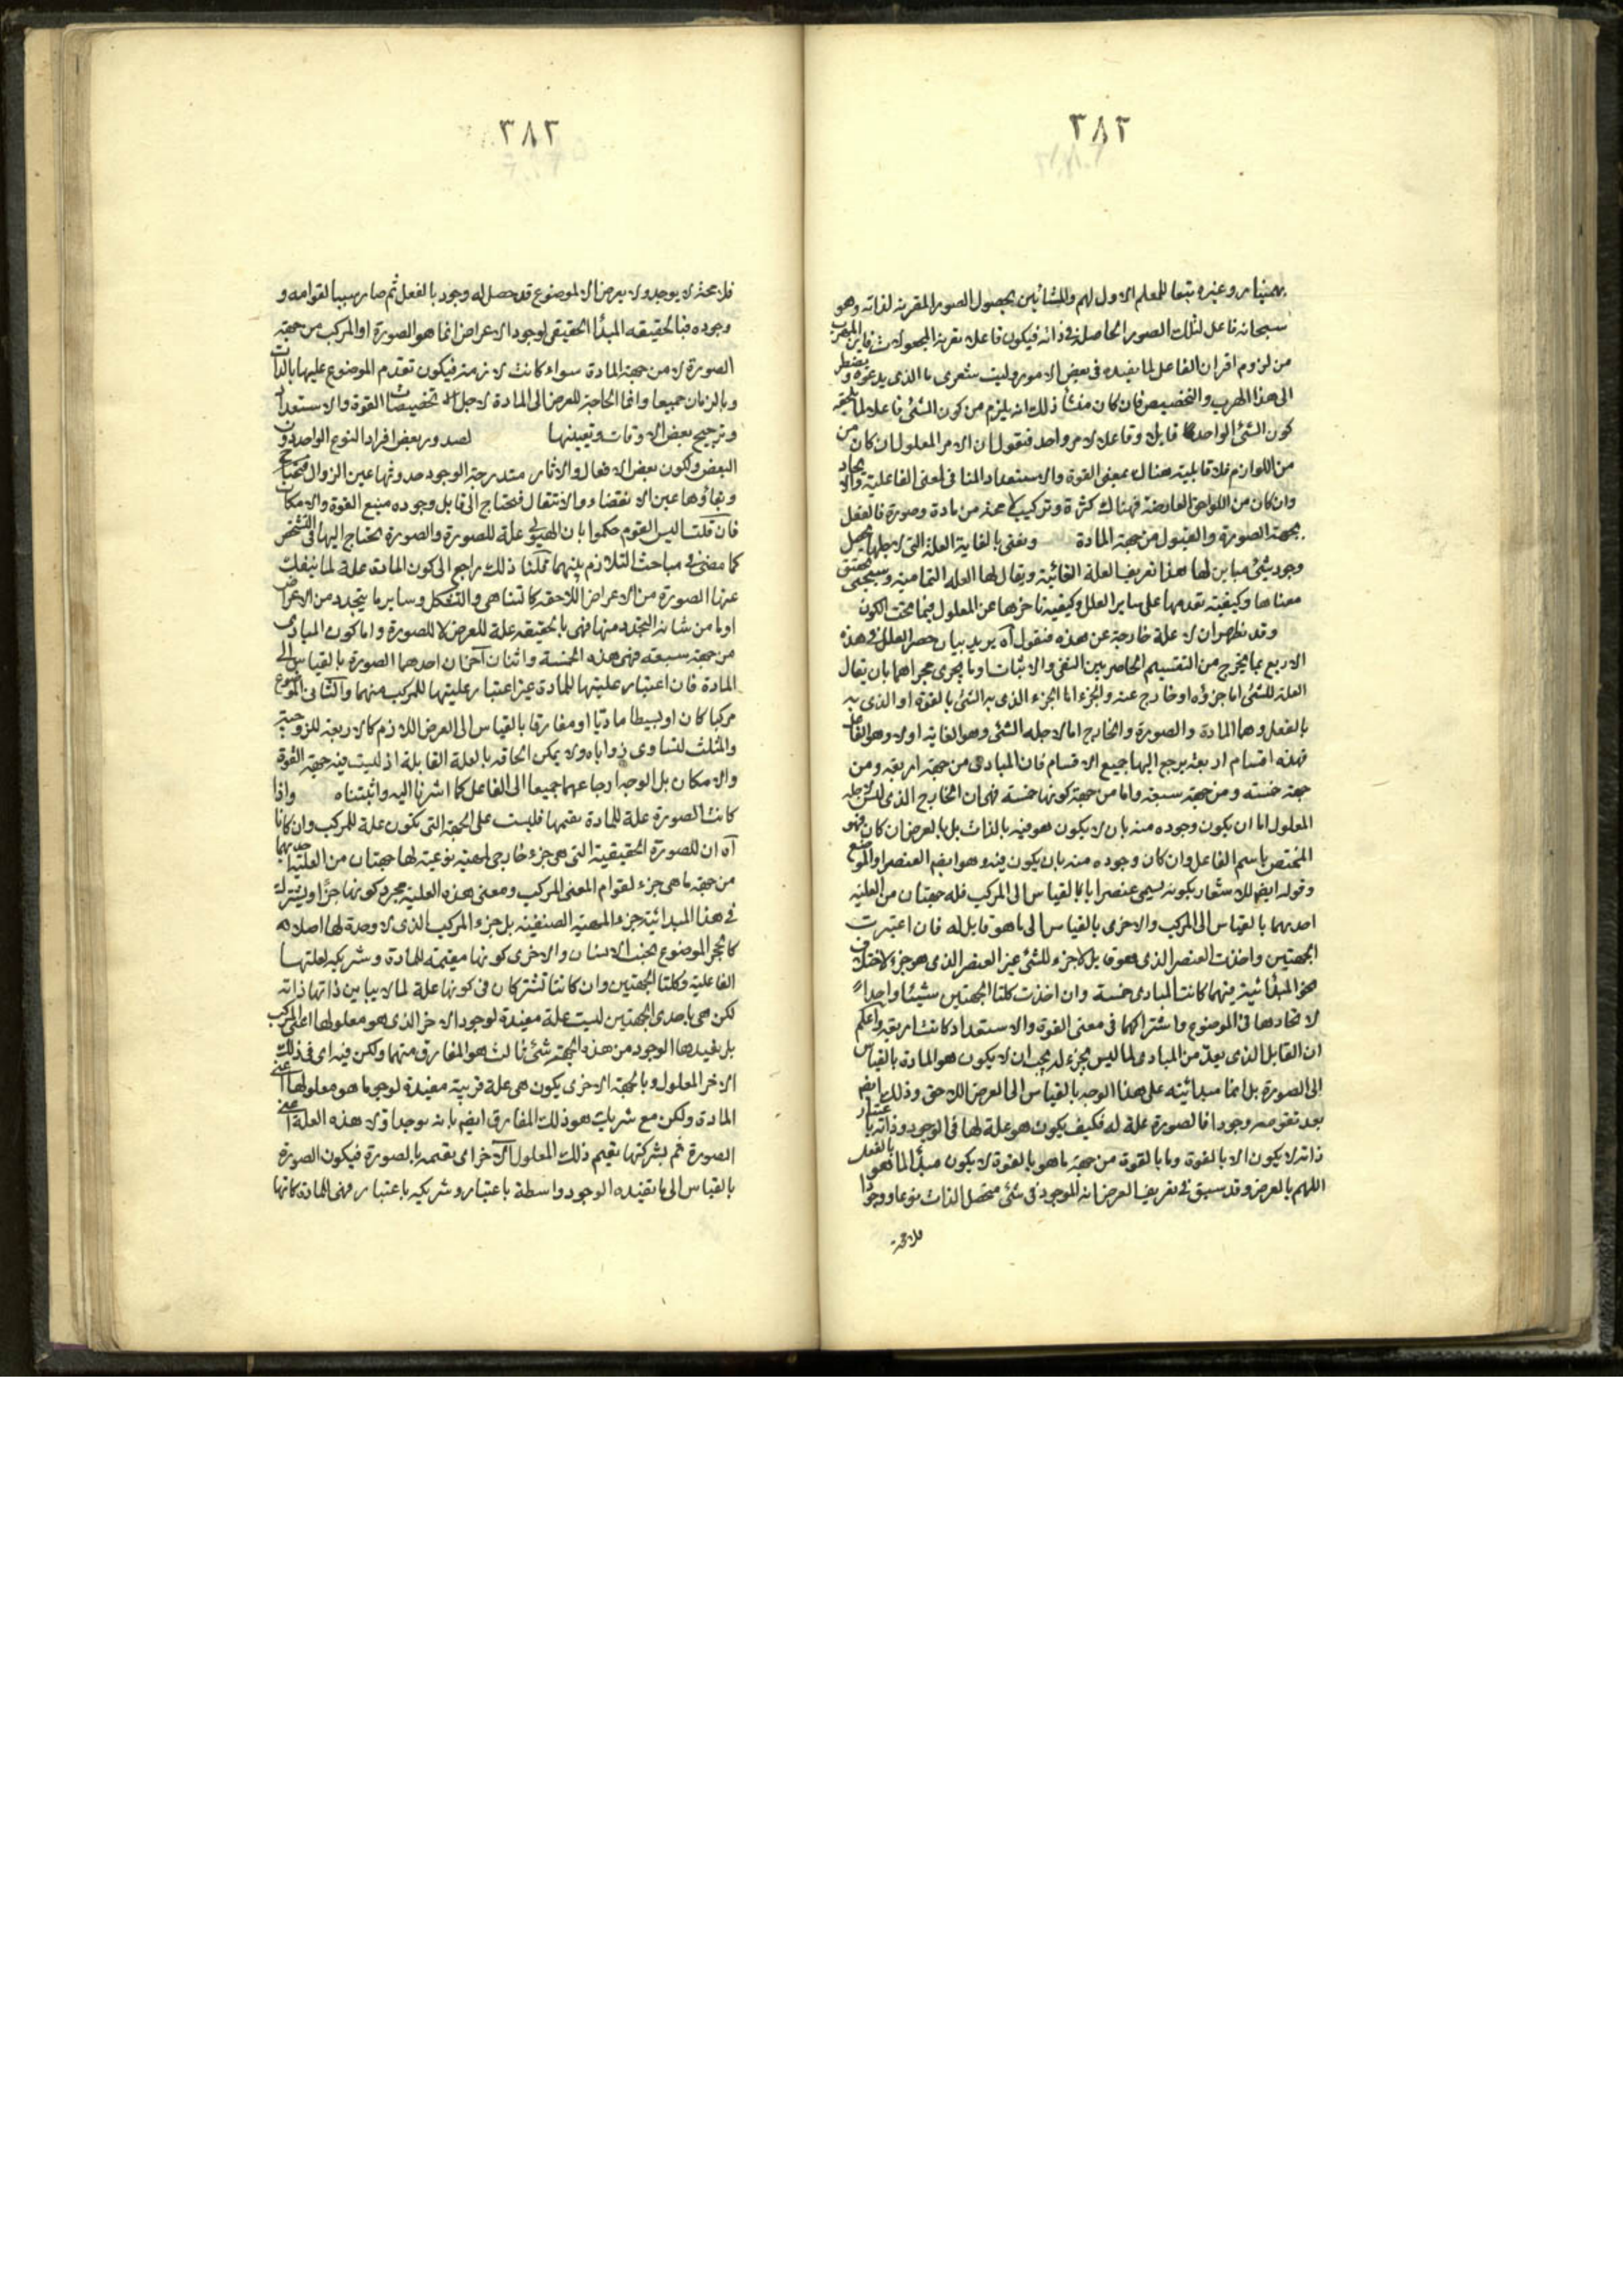 ٢٨٢
بهمنیار وغیره تبعا للمعلم الاول لهم والمشائین بحصول الصور المقررنه لذاته وهو
سبحانه فاعل لتلك الصور الحاصلة فی ذاته فیکون فاعلا مقررنه المجعولات فاین المهرب
من لزوم اقران الفاعل لما یفیده فی بعض الامور ولیت شعری ما الذی یدعوه ویضطر
الی هذا الهرب والتخصیص فان کان منشأ ذلك انه یلزم من کون الشئ فاعلا لما یلحقه
کون الشئ الواحد قابلا وفاعلا لامر واحد فنقول ان الامر المعلول ان کان من
من اللوازم فلا قابلیه هناك بمعنی القوة والاستعداد المنافی لمعنی الفاعلیة والایجاد
وان کان من اللواحق العارضة فهناك کثرة وترکیب لا محمة من مادة وصورة فالفعل
بجهة الصورة والقبول من جهة المادة ونعنی بالغایة العلة التی لاجلها یحصل
وجود شئ مباین لها هذا تعریف العلة الغائیة ویقال لها العلة التمامیة وسیجئ تحقیق
معناها وکیفیة تقدمها علی سایر العلل وکیفیة تاخرها عن المعلول فیما تحت الکون
وقد ظهر ان لا علة خارجة عن هذه فنقول آه یرید بیان حصر العلل فی هذه
الاربع بما یخرج من التقسیم الحاصر بین النفی والاثبات او ما یجری مجراهما بان یقال
العلة للشئ اما جزؤه او خارج عنه والجزء اما الجزء الذی به الشئ بالقوة او الذی به
بالفعل وهما المادة والصورة والخارج اما لاجله الشئ وهو الغایة اولا وهو الفاعل
فهذه اقسام اربعة یرجع الیها جمیع الاقسام فان المبادی من جهة اربعة ومن
جهة خمسة ومن جهة سبعة واما من جهة کونها خمسة فهی ان الخارج الذی لیس لاجله
المعلول اما ان یکون وجوده منه بان لا یکون هو فیه بالذات بل بالعرض ان کان فهو
المختص باسم الفاعل وان کان وجوده منه بان یکون فیه وهو ایضم العنصر او الموضوع
وقوله ایضم للاشعار بکونه یسمی عنصرا بالقیاس الی المرکب فله جهتان من العلیة
احدیهما بالقیاس الی المرکب والاخری بالقیاس الی ما هو قابل له فان اعتبرت
الجهتین واخذت العنصر الذی هو قابل لاجزء للشئ غیر العنصر الذی هو جزء لاختلاف
نحو المبدائیة منهما کانت المبادی خمسة وان اخذت کلتا الجهتین شیئا واحدا
لاتحادها فی الموضوع واشتراکهما فی معنی القوة والاستعداد کانت اربعة واعلم
ان القابل الذی یعد من المبادی لما لیس بجزء له یجب ان لا یکون هو المادة بالقیاس
الی الصورة بل انما مبدائیته علی هذا الوجه بالقیاس الی العرض اللاحق وذلك ایضم
بعد تقومه وجودا فالصورة علة له فکیف یکون هو علة لها فی الوجود وذاته باعتبار
ذاته لا یکون الا بالقوة وما بالقوة من جهة ما هو بالقوة لا یکون مبدأ لما هو بالفعل
اللهم بالعرض وقد سبق فی تعریف العرض انه الموجود فی شئ متحصل الذات نوعا ووجودا
فلا محة
٢٨٣
فلا محة لا یوجد ولا یعرض الا لموضوع قد حصل له وجود بالفعل ثم صار سببا لقوامه و
وجوده فبالحقیقه المبدأ الحقیقی لوجود الاعراض انما هو الصورة او المرکب من جهة
الصورة لا من جهة المادة سواء کانت لازمة فیکون تقدم الموضوع علیها بالذات
وبالزمان جمیعا وانما الحاجة للعرض الی المادة لاجل تخصیصات القوة والاستعداد
وترجیح بعض الاوقات وتعیینها لصدور بعض افراد النوع الواحد دون
البعض ولکون بعض الافعال والاثار متدرجة الوجود حدوثها عین الزوال
وبقاؤها عین الانقضاء والانتقال فتحتاج الی قابل وجوده منبع القوة والامکان
فان قلت الیس القوم حکموا بان الهیولی علة للصورة والصورة تحتاج الیها فی التشخص
کما مضی فی مباحث التلازم بینهما قلنا ذلك راجع الی کون المادة علة لما ینفك
عنها الصورة من الاعراض اللاحقة کالتناهی والتشکل وسایر ما یتجدد من الاعراض
او ما من شانه التجدد منها فهی بالحقیقة علة للعرض لا للصورة واما کون المبادی
من جهة سبعة فهی هذه الخمسة واثنان آخران احدهما الصورة بالقیاس الی
المادة فان اعتبار علیتها للمادة غیر اعتبار علیتها للمرکب منهما والثانی الموضوع
مرکبا کان او بسیطا مادیا او مفارقا بالقیاس الی العرض اللازم کالاربعة للزوجیة
والمثلث لتساوی زوایاه ولا یمکن الحاقه بالعلة القابلة اذ لیست فیه جهة القوة
والامکان بل الوجه ارجاعهما جمیعا الی الفاعل کما اشرنا الیه واثبتناه واذا
کانت الصورة علة للمادة یقیمها فلیست علی الجهة التی تکون علة للمرکب وان کانا
آه ان للصورة الحقیقیة التی هی جزء خارجی لمهیة نوعیة لها جهتان من العلیة احدیهما
من جهة ما هی جزء لقوام المعنی المرکب ومعنی هذه العلیة مجرد کونها جزأ ویشترك
فی هذا المبدائیة جزء المهیة الصنفیة بل جزء المرکب الذی لا وحدة لها اصلا
کالحجر الموضوع بجنب الانسان والاخری کونها مقیمة للمادة وشریکة لعلتها
الفاعلیة وکلتا الجهتین وان کانتا تشترکان فی کونها علة لما لا یباین ذاتها ذاته
لکن هی باحدی الجهتین لیست علة مفیدة لوجود الاخر الذی هو معلولها اعنی المرکب
بل یفیدها الوجود من هذه الجهة شئ ثالث هو المفارق منهما ولکن فیه ای فی ذلك
الاخر المعلول وبالجهة الاخری یکون هی علة قریبة مفیدة لوجود ما هو معلولها اعنی
المادة ولکن مع شریك هو ذلك المفارق ایضم بانه یوجد اولا هذه العلة اعنی
الصورة ثم بشرکتها یقیم ذلك المعلول الآخر ای یقیمه بالصورة فیکون الصورة
بالقیاس الی ما تفیده الوجود واسطة باعتبار وشریکه باعتبار فهی للمادة کانها